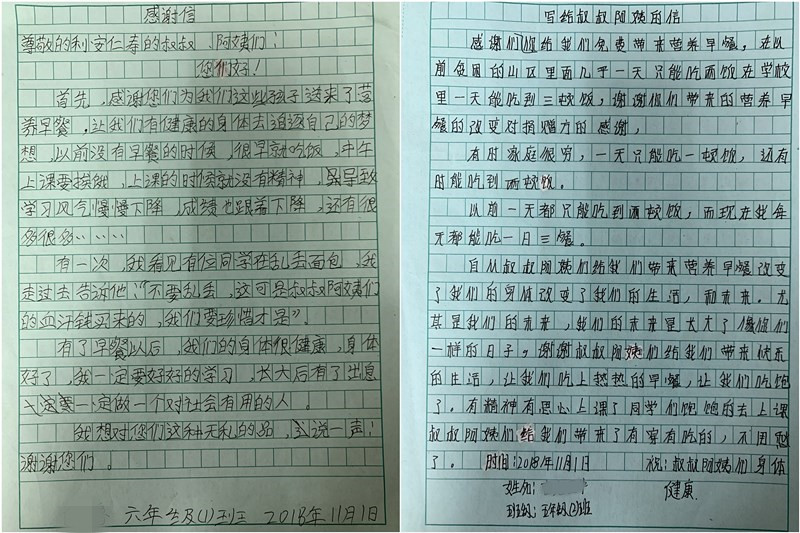 感谢信
尊敬的利安仁寿的叔叔、阿姨们:
您们好!
首先,感谢您们为我们这些孩子送来了营
养早餐,让我们有健康的身体去追逐自己的梦
想,以前没有早餐的时候,很早就吃饭,中午
上课要挨饿,上课的时候就没有精神,导致
学习风气慢慢下降,成绩也跟着下降,还有很
多很多……
有一次,我看见有位同学在乱丢面包,我
走过去告诉他:“不要乱丢,这可是叔叔阿姨们
的血汗钱买来的,我们要珍惜才是”。
有了早餐以后,我们的身体很健康,身体
好了,我一定要好好的学习,长大后有了出息
一定要一定做一个对社会有用的人。
我想对您们这种无私的品,说一声:
谢谢您们。
六年级(1)班 2018年11月1日
写给叔叔阿姨的信
感谢们你给我们免费带来营养早餐,在以
前贫困的山区里面几乎一天只能吃两饭在学校
里一天能吃到三顿饭,谢谢你们带来的营养早
餐的改变对捐赠方的感谢,
有时家庭很穷,一天只能吃一顿饭,还有
时能吃到两顿饭。
以前一天都只能吃到两顿饭,而现在我每
天都能吃一日三餐。
自从叔叔阿姨们给我们带来营养早餐改变
了我们的身体改变了我们的生活,和未来。尤
其是我们的未来,我们的未来是长大了像你们
一样的日子。谢谢叔叔阿姨们给我们带来快乐
的生活,让我们吃上热热的早餐,让我们吃饱
了。有精神有思心上课了同学们饱饱的去上课
叔叔阿姨们给我们带来了有穿有吃的,不用愁
了。 时间:2018年11月1 祝:叔叔阿姨们身体
姓名: 健康
班级:五年级(2)班